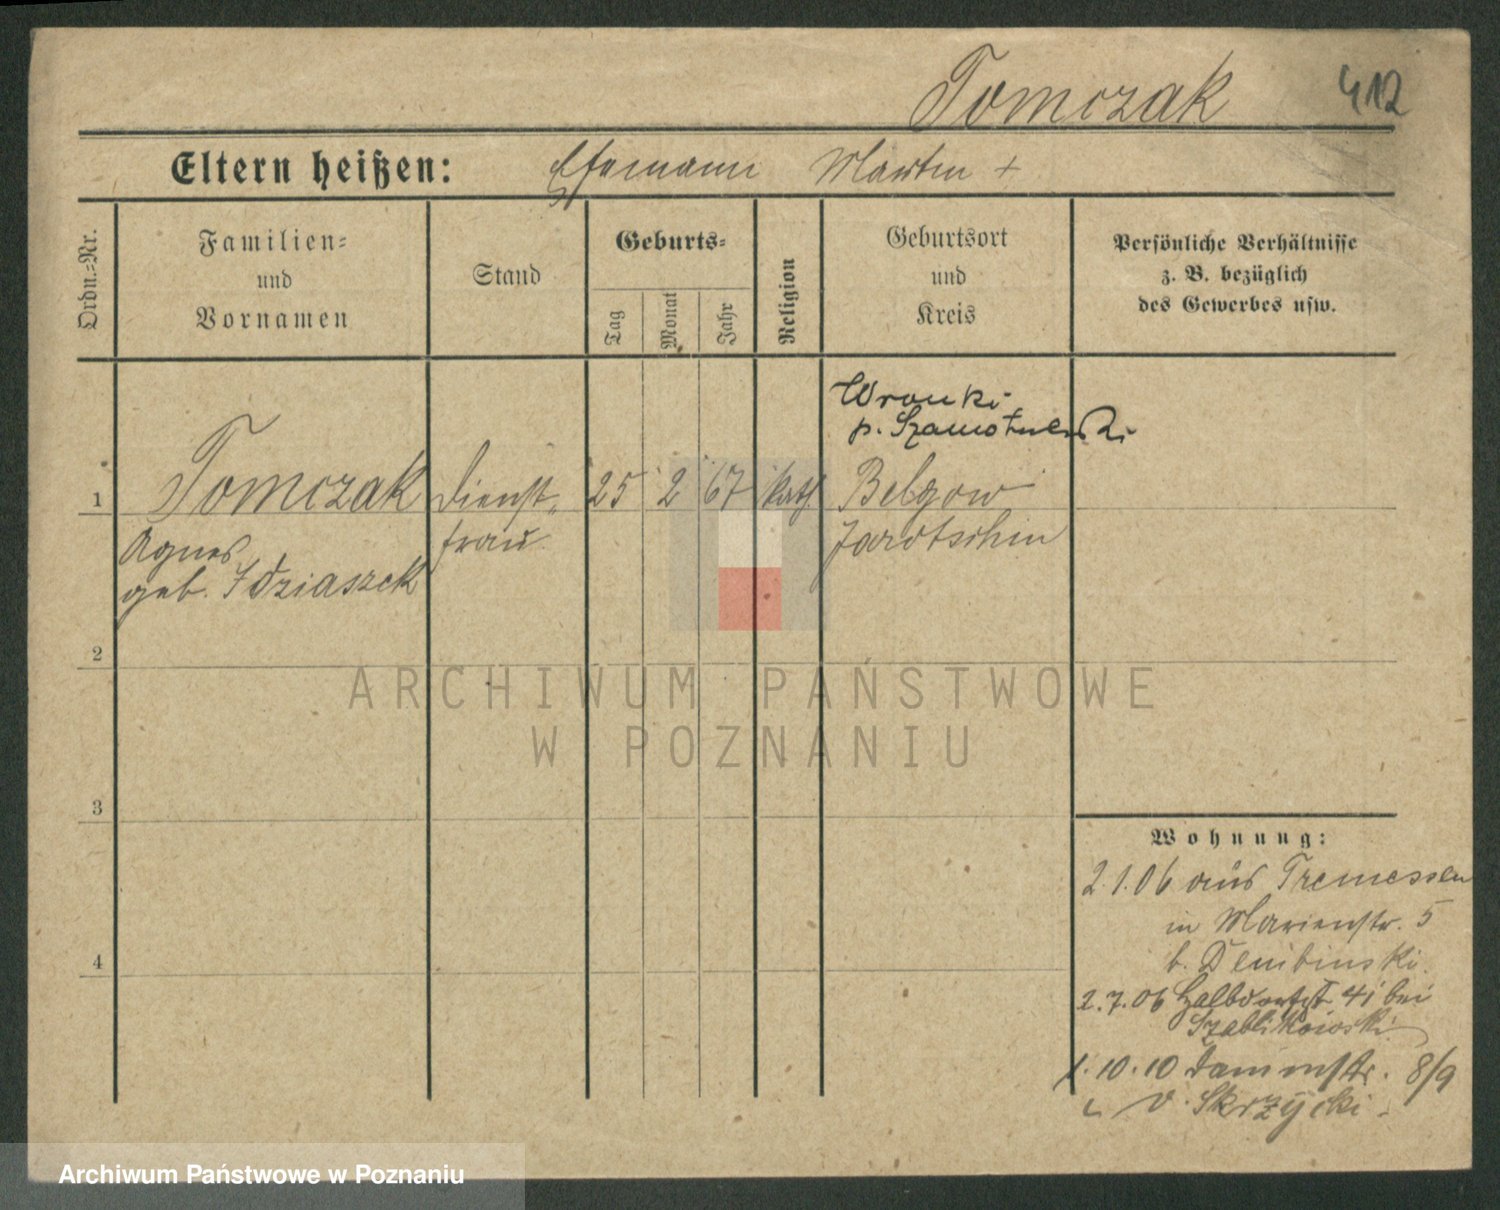 Tomczak
412
Eltern heißen: Ehemann Martin +
Ordn.-Nr.
Familien-
und
Vornamen
Stand
Geburts-
Tag
Monat
Jahr
Religion
Geburtsort
und
Kreis
Persönliche Verhältnisse
z. B. bezüglich
des Gewerbes usw.
Wronki
p. Szamotulski
1 Tomczak Dienst- 25 2 67 kath. Belgow
Agnes frau Jarotschin
geb. Idziaszek
2
3
4
ARCHIWUM PAŃSTWOWE
W POZNANIU
Wohnung:
2.1.06 aus Tremessen
in Marienstr. 5
b. Dembinski.
2.7.06 Halbdorfst 41 bei
Szablikowski
1.10.10 Dammstr. 8/9
v. Skrzycki
Archiwum Państwowe w Poznaniu